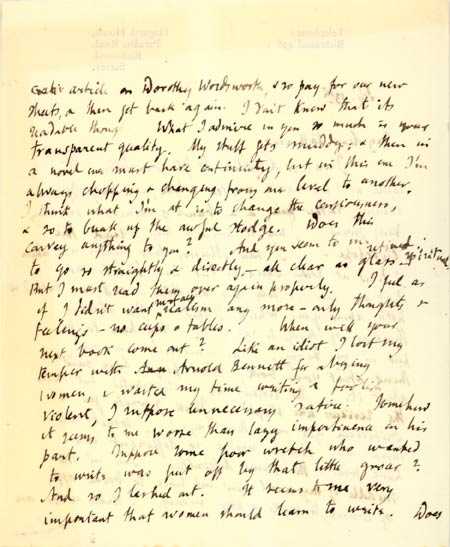 article on Dorothy Wordsworth & so pay for our new
sheets, & then get back again. I don't know that its
readable though. What I admire in you so much is your
transparent quality. My stuff gets muddy; & then in
a novel one must have continuity, but in this one I'm
always chopping & changing from one level to another.
I think what I'm at is to change the consciousness,
& so to break up the awful stodge. Does this
convey anything to you? And you seem to me
to go so straightly & directly, – all clear as glass – refined, spiritual.
But I must read them over again properly. I feel as
if I didn't want realism any more – only thoughts &
feelings – no cups & tables. When will your
next book come out? Like an idiot I lost my
temper with Arnold Bennett for abusing
women, & wasted my time writing a
violent, I suppose unnecessary satire. Somehow
it seems to me worse than lazy impertinence on his
part. Suppose some poor wretch who wanted
to write was put off by that little
And so I lashed out. It seems to me very
important that women should learn to write. Does